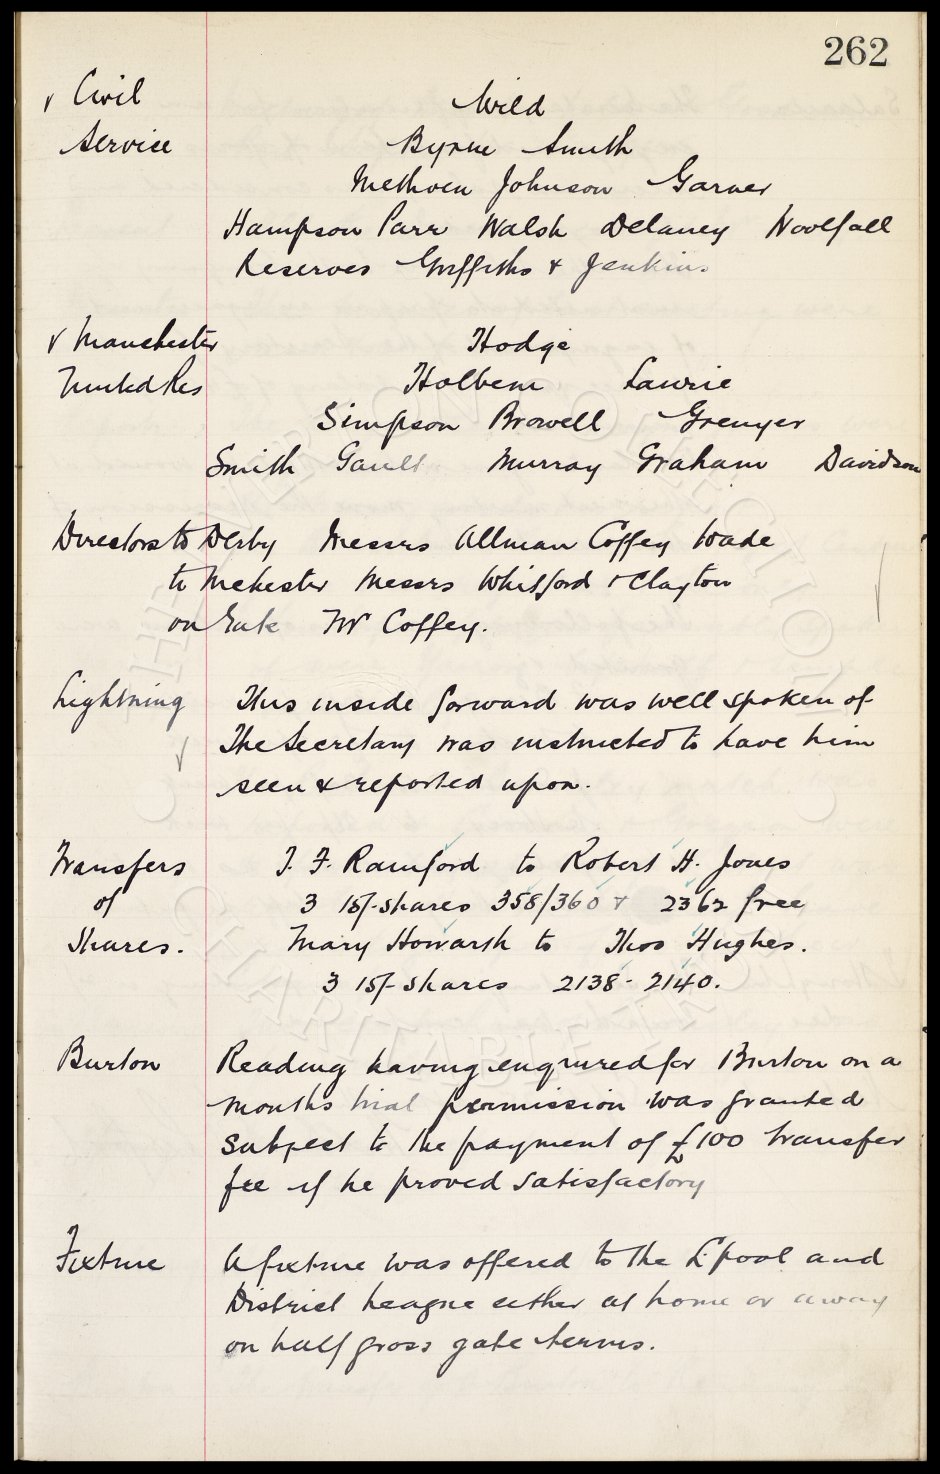 262
v Civil Wild
Service Byrne Smith
Methven Johnson Garner
Hampson Parr Walsh Delaney Woolfall
Reserves Griffiths & Jenkins
v Manchester Hodge
United Res Holbem Lawrie
Simpson Browell Grenyer
Smith Gault Murray Graham Davidson
Directors to Derby Messrs Allman Coffey Wade
to Mchester Messrs Whitford & Clayton
on Gate Mr Coffey.
Lightning This inside forward was well spoken of
The Secretary was instructed to have him
seen & reported upon.
Transfers J. F. Rainford to Robert H. Jones
of 3 15/- shares 358/360 & 2362 free
Shares. Mary Howarth to Thos Hughes.
3 15/- shares 2138 - 2140.
Burton Reading having enquired for Burton on a
months trial permission was granted
subject to the payment of £100 transfer
fee if he proved satisfactory
Fixture A fixture was offered to the L'pool and
District League either at home or away
on half gross gate terms.